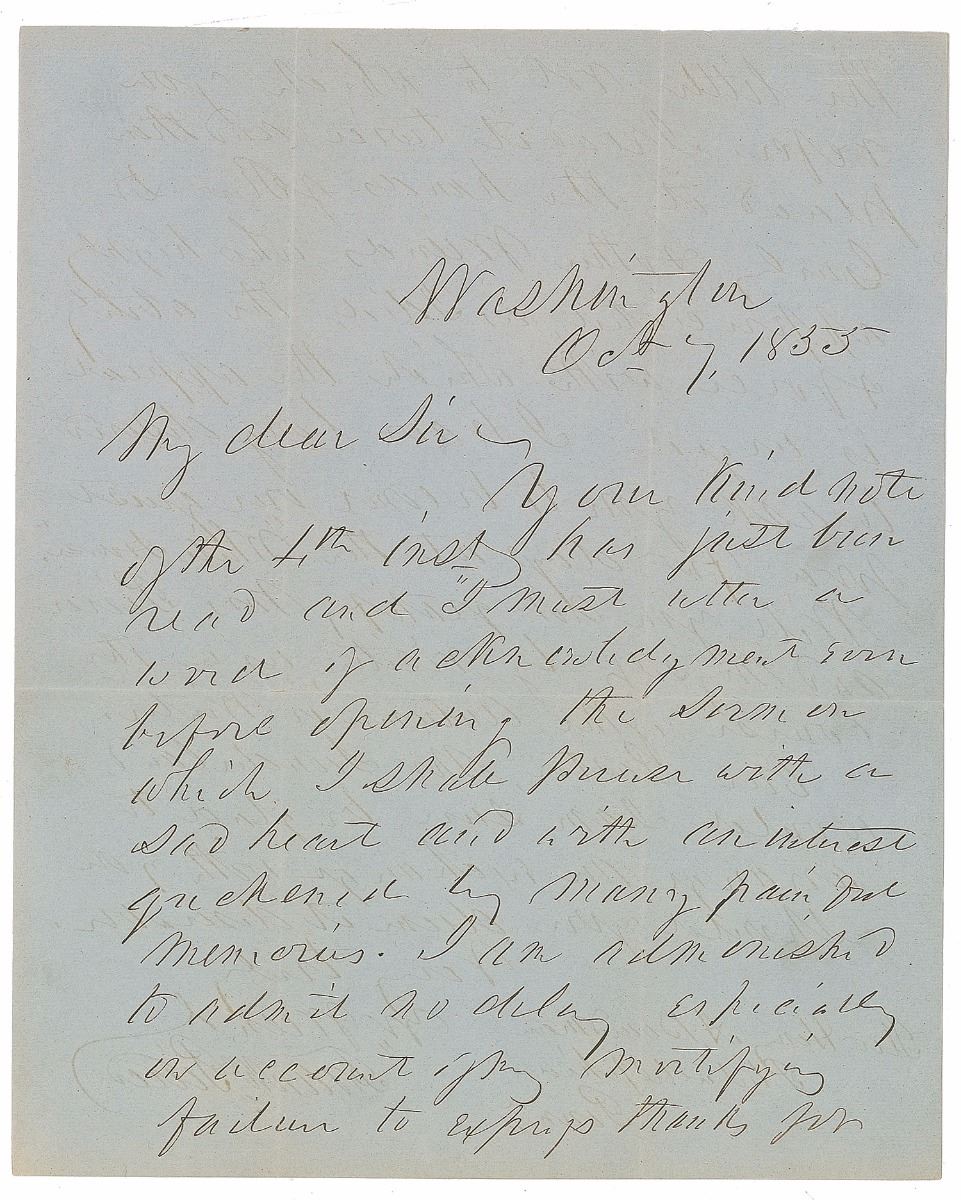 Washington
Oct 7, 1855
My dear Sir,
Your kind note
of the 4th inst, has just been
read and I must utter a
word of acknowledgment even
before opening the Sermon
which I shall peruse with a
sad heart and with an interest
quickened by many painful
memories. I am admonished
to admit no delay especially
on account of my mortifying
failure to express thanks for